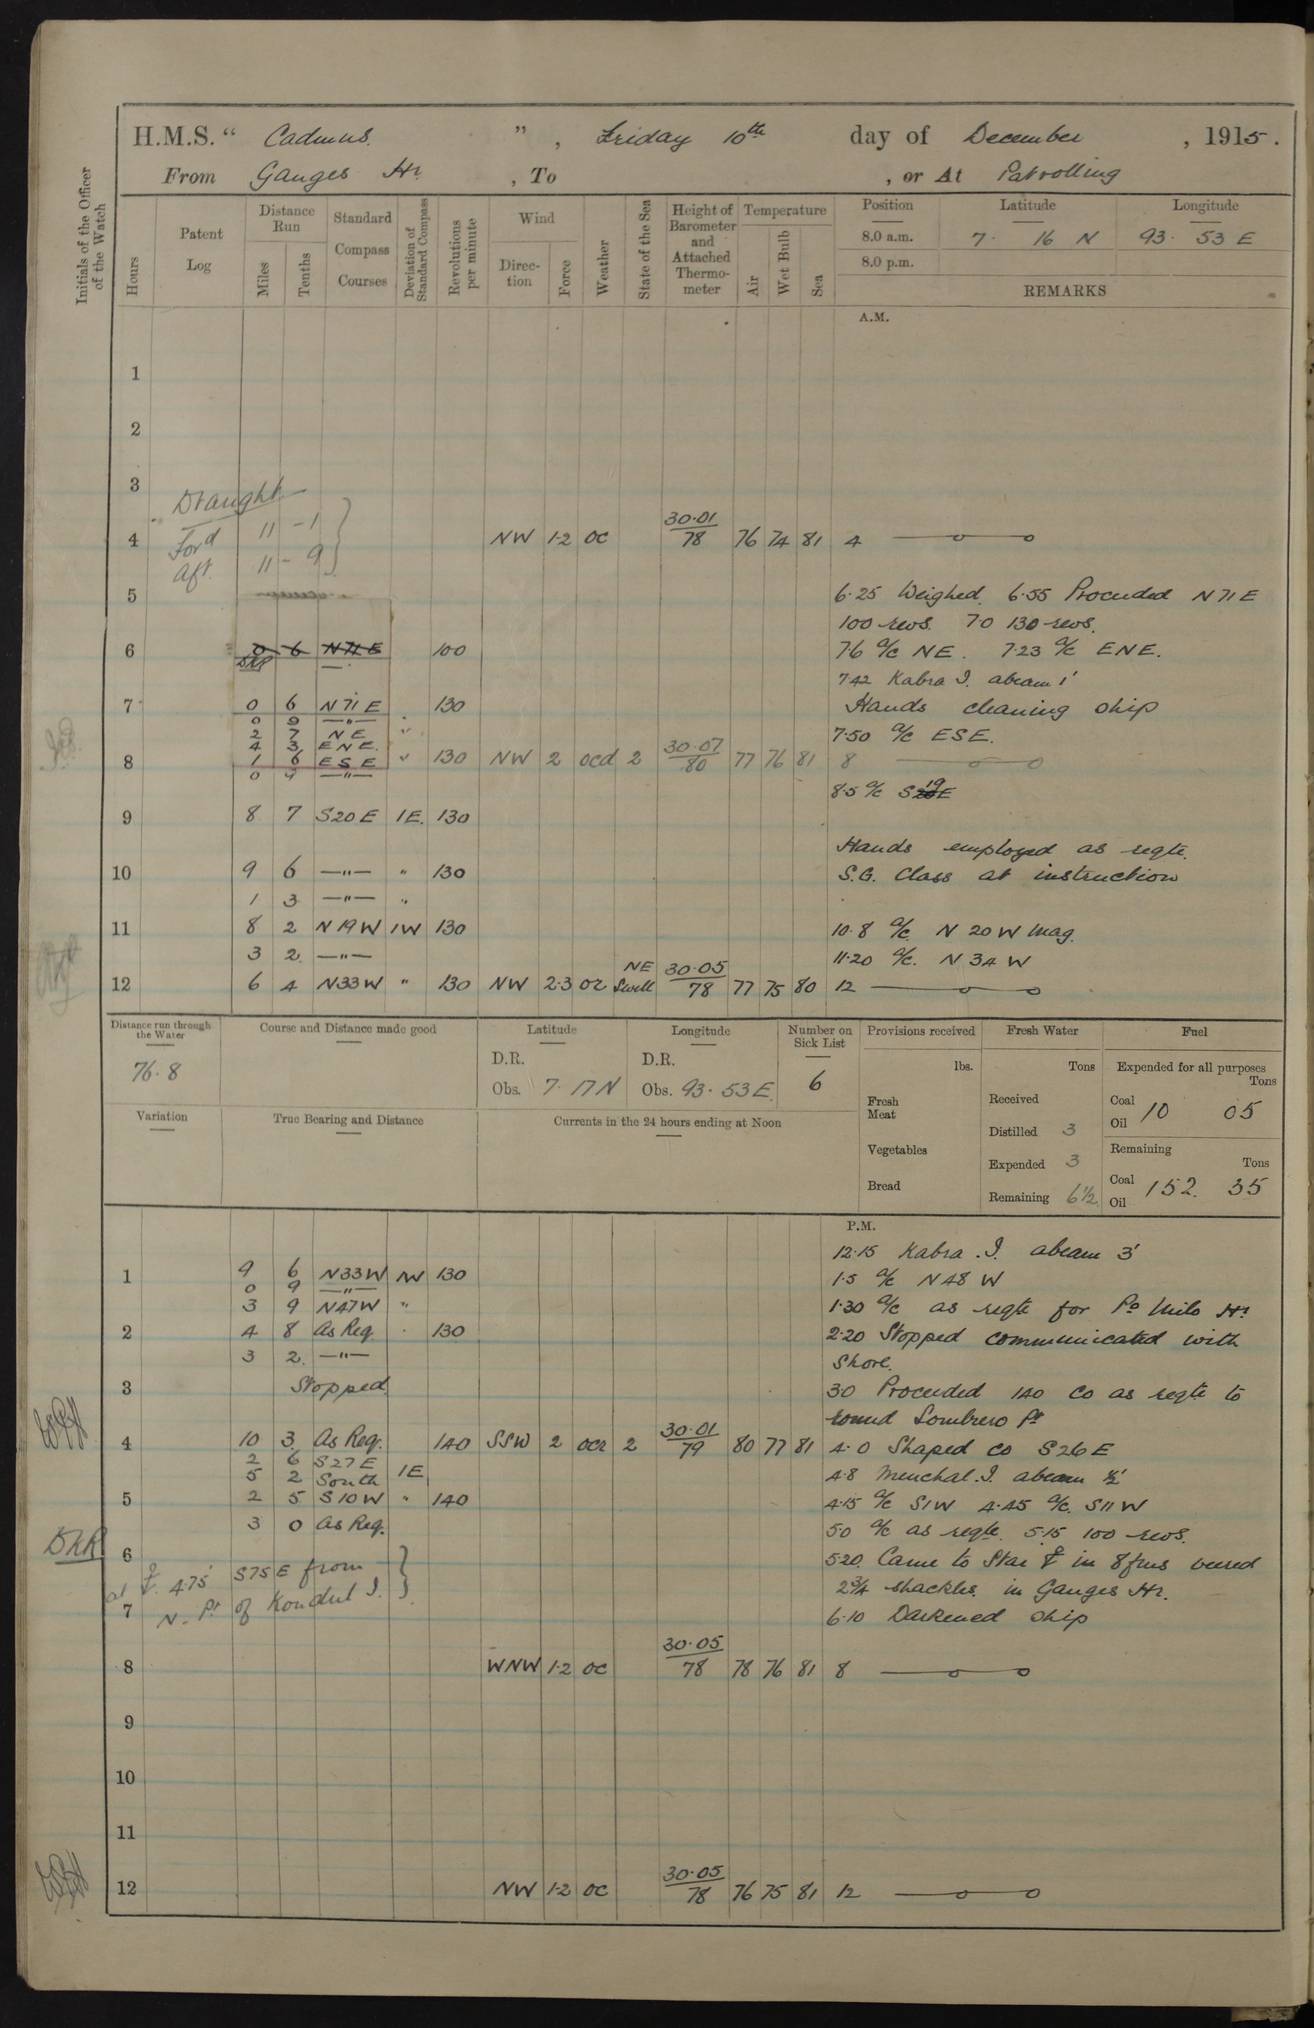 H.M.S. " Cadmus " , Friday 10th day of December , 1915.
From Ganges Hr , To , or At Patrolling
Initials of the Officer of the Watch
Hours
Patent Log
Distance Run
Miles
Tenths
Standard Compass Courses
Deviation of Standard Compass
Revolutions per minute
Wind
Direction
Force
Weather
State of the Sea
Height of Barometer and Attached Thermometer
Temperature
Air
Wet Bulb
Sea
Position
8.0 a.m.
8.0 p.m.
Latitude
7. 16 N
Longitude
93. 53 E
REMARKS
A.M.
1
2
3
Draught
Ford 11 - 1
Aft. 11 - 9
4 NW 1·2 oc 30·01/78 76 74 81 4
5 6·25 Weighed. 6·55 Proceeded N 71 E
100 revs. 70 130 revs.
6 0 6 N 71 E 100 7·6 a/c NE. 7·23 a/c ENE.
7·42 Kabra I. abeam 1'
7 0 6 N 71 E 130 Hands cleaning ship
0 9 —"—
2 7 NE " 7·50 a/c ESE.
4 3 ENE.
8 1 6 ESE " 130 NW 2 ocd 2 30·07/80 77 76 81 8
0 —"—
8·5 a/c S 20 19 E
9 8 7 S20E 1E. 130
Hands employed as reqte.
10 9 6 —"— " 130 S.G. Class at instruction
1 3 —"— "
11 8 2 N 19 W 1W 130 10·8 a/c N 20 W mag.
3 2 —"— 11·20 a/c. N 34 W
12 6 4 N33W " 130 NW 2·3 oc NE Swell 30·05/78 77 75 80 12
Distance run through the Water
76·8
Course and Distance made good
Latitude
D.R.
Obs. 7· 17 N
Longitude
D.R.
Obs. 93· 53 E.
Number on Sick List
6
Provisions received
lbs.
Fresh Meat
Vegetables
Bread
Fresh Water
Tons
Received
Distilled 3
Expended 3
Remaining 6½
Fuel
Expended for all purposes
Tons
Coal
Oil 10 05
Remaining
Tons
Coal
Oil 152. 35
Variation
True Bearing and Distance
Currents in the 24 hours ending at Noon
P.M.
12·15 Kabra. I. abeam 3'
1 9 6 N33W 1W 130 1·5 a/c N 48 W
0 9 —"—
3 9 N47W " 1·30 a/c as reqte for Po Milo Hr
2 4 8 As Req. 130 2·20 Stopped communicated with
3 2. —"— Shore.
3 Stopped 3·0 Proceeded 140 Co as reqte to
round Sombrero Pt
4 10 3 As Req. 140 SSW 2 ocr 2 30·01/79 80 77 81 4·0 Shaped co S26E
2 6 S27E
5 2 South 1E 4·8 Menchal. I. abeam ½'
5 2 5 S10W " 140 4·15 a/c S1W 4·45 a/c. S11W
3 0 As Req. 5·0 a/c as reqte. 5·15 100 revs.
DKR
6 5·20. Came to Star ⚓ in 8 fms veered
at ⚓. 4·75' S75E from
N. Pt of Kondul I.
2¾ shackles in Ganges Hr.
7 6·10 Darkened ship
8 WNW 1·2 oc 30·05/78 78 76 81 8
9
10
11
12 NW 1·2 oc 30·05/78 76 75 81 12